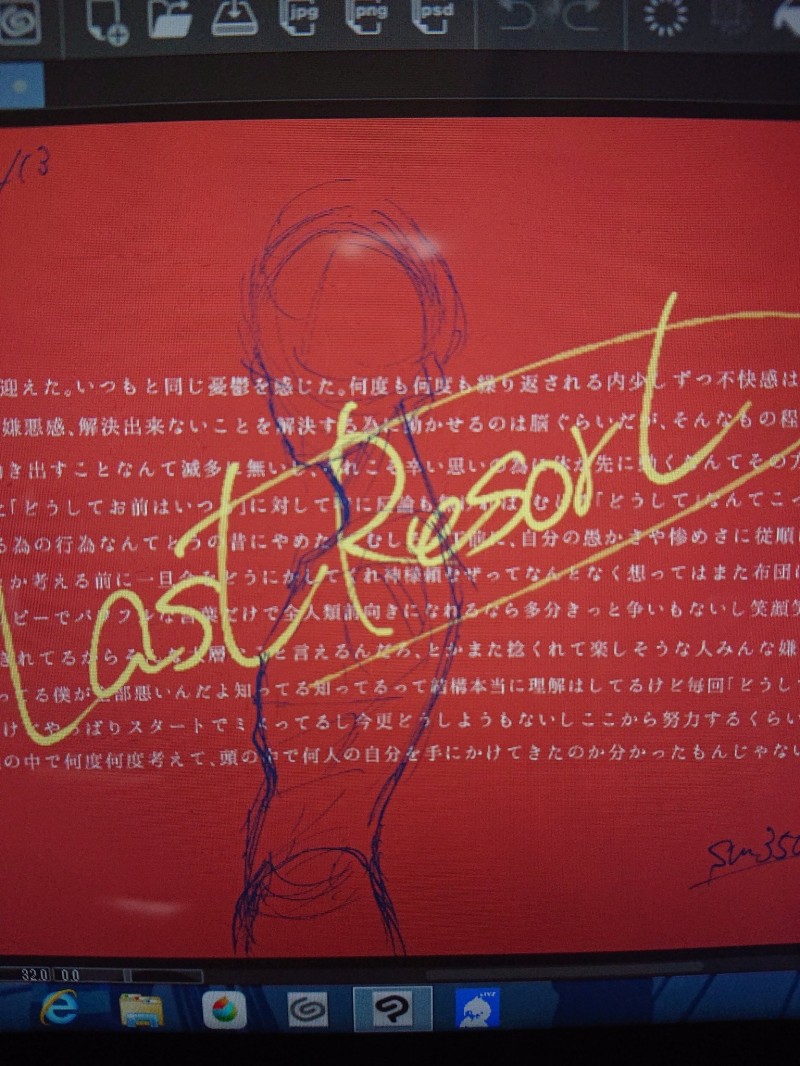 jpg png psd
迎えた。いつもと同じ憂鬱を感じた。何度も何度も繰り返される内少しずつ不快感は
嫌悪感、解決出来ないことを解決する為に動かせるのは脳ぐらいだが、そんなもの程
き出すことなんて滅多に無いし、それこそ辛い思いの為に体が先に動くなんてその
「どうしてお前はいつも」に対して特に反論も「どうして」なんてこ
る為の行為なんてとうの昔にやめた、自分の愚かさや惨めさに従順
か考える前に一旦金をどうにかしてくれ神様頼むぜってなんとなく想ってはまた布団
ピーでパワフルな言葉だけで全人類前向きになれるなら多分きっと争いもないし笑顔
されてるからと言えるんだろ、とかまた捻くれて楽しそうな人みんな嫌
ってる僕が全部悪いんだよ知ってる知ってるって結構本当に理解はしてるけど毎回「どうし
けどやっぱりスタートでミスってるし今更どうしようもないしここから努力するくらい
の中で何度何度考えて、頭の中で何人の自分を手にかけてきたのか分かったもんじゃない
Last Resort
32.0 0.0
LIVE